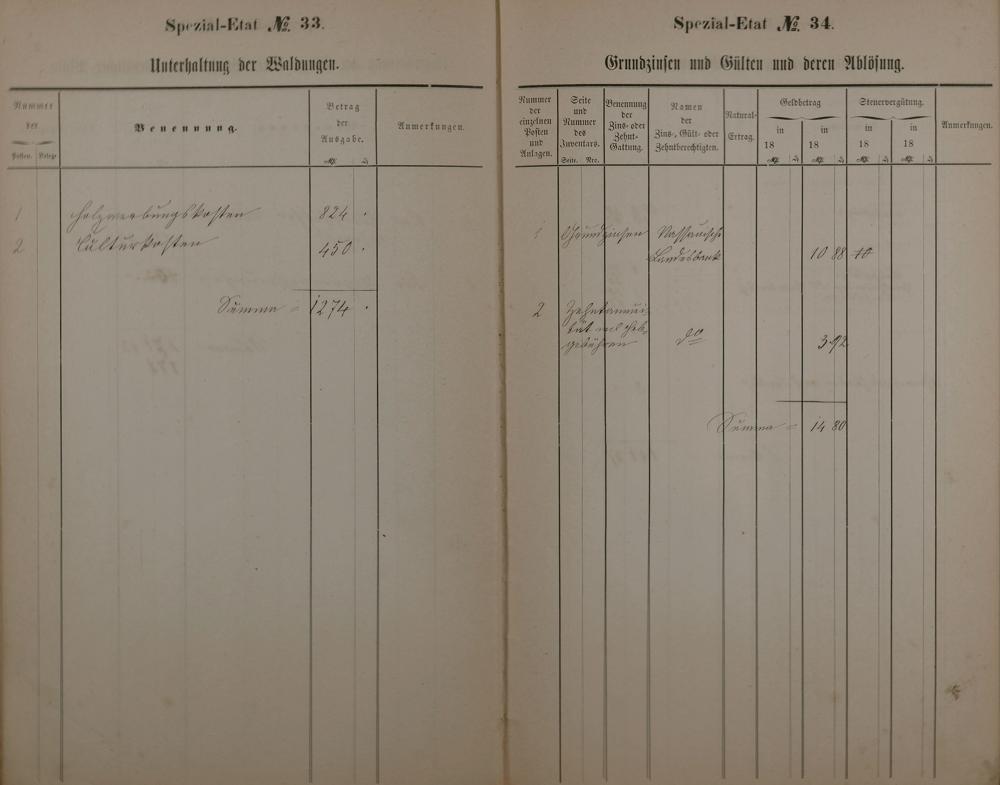 Spezial-Etat No. 33.
Unterhaltung der Waldungen.
Nummer der
Posten. Belege.
Benennung.
Betrag der Ausgabe.
ℳ ₰
Anmerkungen.
1 Holzwerbungskosten 824 .
2 Culturkosten 450 .
Summa = 1274 .
Spezial-Etat No. 34.
Grundzinsen und Gülten und deren Ablösung.
Nummer der einzelnen Posten und Anlagen.
Seite und Nummer des Inventars.
Seite. Nro.
Benennung der Zins- oder Zehnt-Gattung.
Namen der Zins-, Gült- oder Zehntberechtigten.
Natural-Ertrag.
Geldbetrag
in 18 in 18
ℳ ₰ ℳ ₰
Steuervergütung.
in 18 in 18
ℳ ₰ ℳ ₰
Anmerkungen.
1 Grundzinsen Nassauische
Landesbank 10 88
2 Zehntannui-
tät und Heb-
gebühren do 3 92
Summa = 14 80